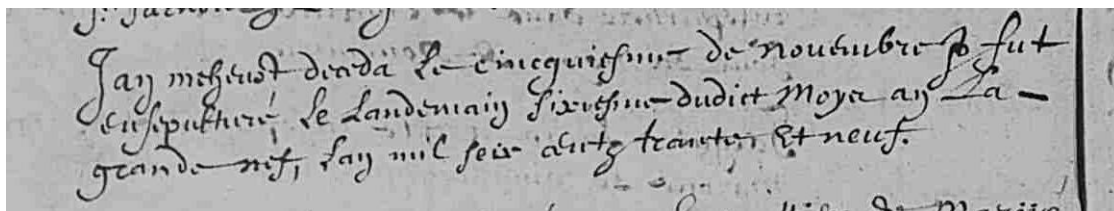 Jan mehevost deceda le cincquiesme de novembre & fut
ensepulturé, le landemain sixiesme dudict Moys an La
grande nef, lan mil seix centz trante, Et neuf.